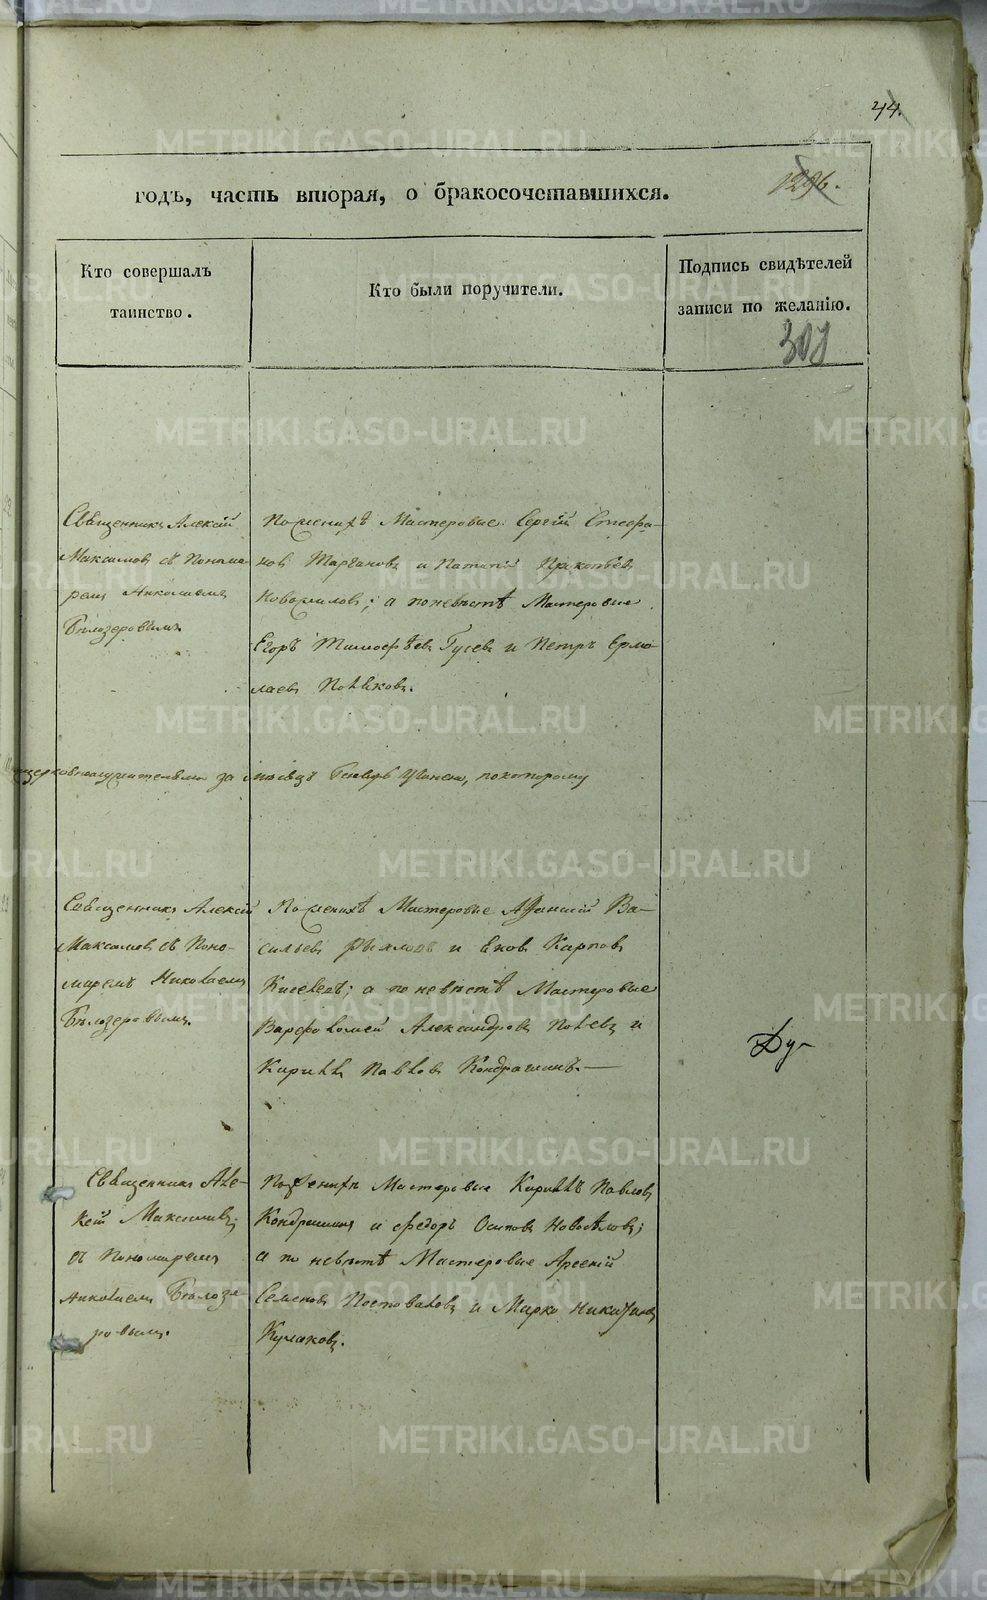 44.
1296.
годъ, часть вторая, о бракосочетавшихся.
Кто совершалъ
таинство.
Кто были поручители.
Подпись свидѣтелей
записи по желанію.
307
Священникъ Алексій
Максимовъ съ Понома-
ремъ Николаемъ
Бѣлозеровымъ
По женихѣ Мастеровые: Сергій Стефа-
новъ Таргановъ и Потапій Прокопьевъ
Новожиловъ; а по невѣстѣ Мастеровые
Егоръ Тимофѣевъ Гусевъ и Петръ Ермо-
лаевъ Поляковъ.
за мѣсяцъ Генварь, по которому
Священникъ Алексій
Максимовъ съ Поно-
маремъ Николаемъ
Бѣлозеровымъ.
По женихѣ Мастеровые Афанасій Ва-
сильевъ и Еновъ Карповъ
Киселевъ; а по невѣстѣ Мастеровые
Варфоломей Александровъ и
Кириллъ Павловъ Кондрашинъ.—
Священникъ Але-
ксій Максимовъ,
съ Пономаремъ
Николаемъ Бѣлозе-
ровымъ.
По женихѣ Мастеровые Кириллъ Павловъ
Кондрашинъ и Федоръ Осиповъ Новоселовъ;
а по невѣстѣ Мастеровые Арсеній
Семеновъ Постоваловъ и Марко Никитинъ
Кулаковъ.
METRIKI.GASO-URAL.RU